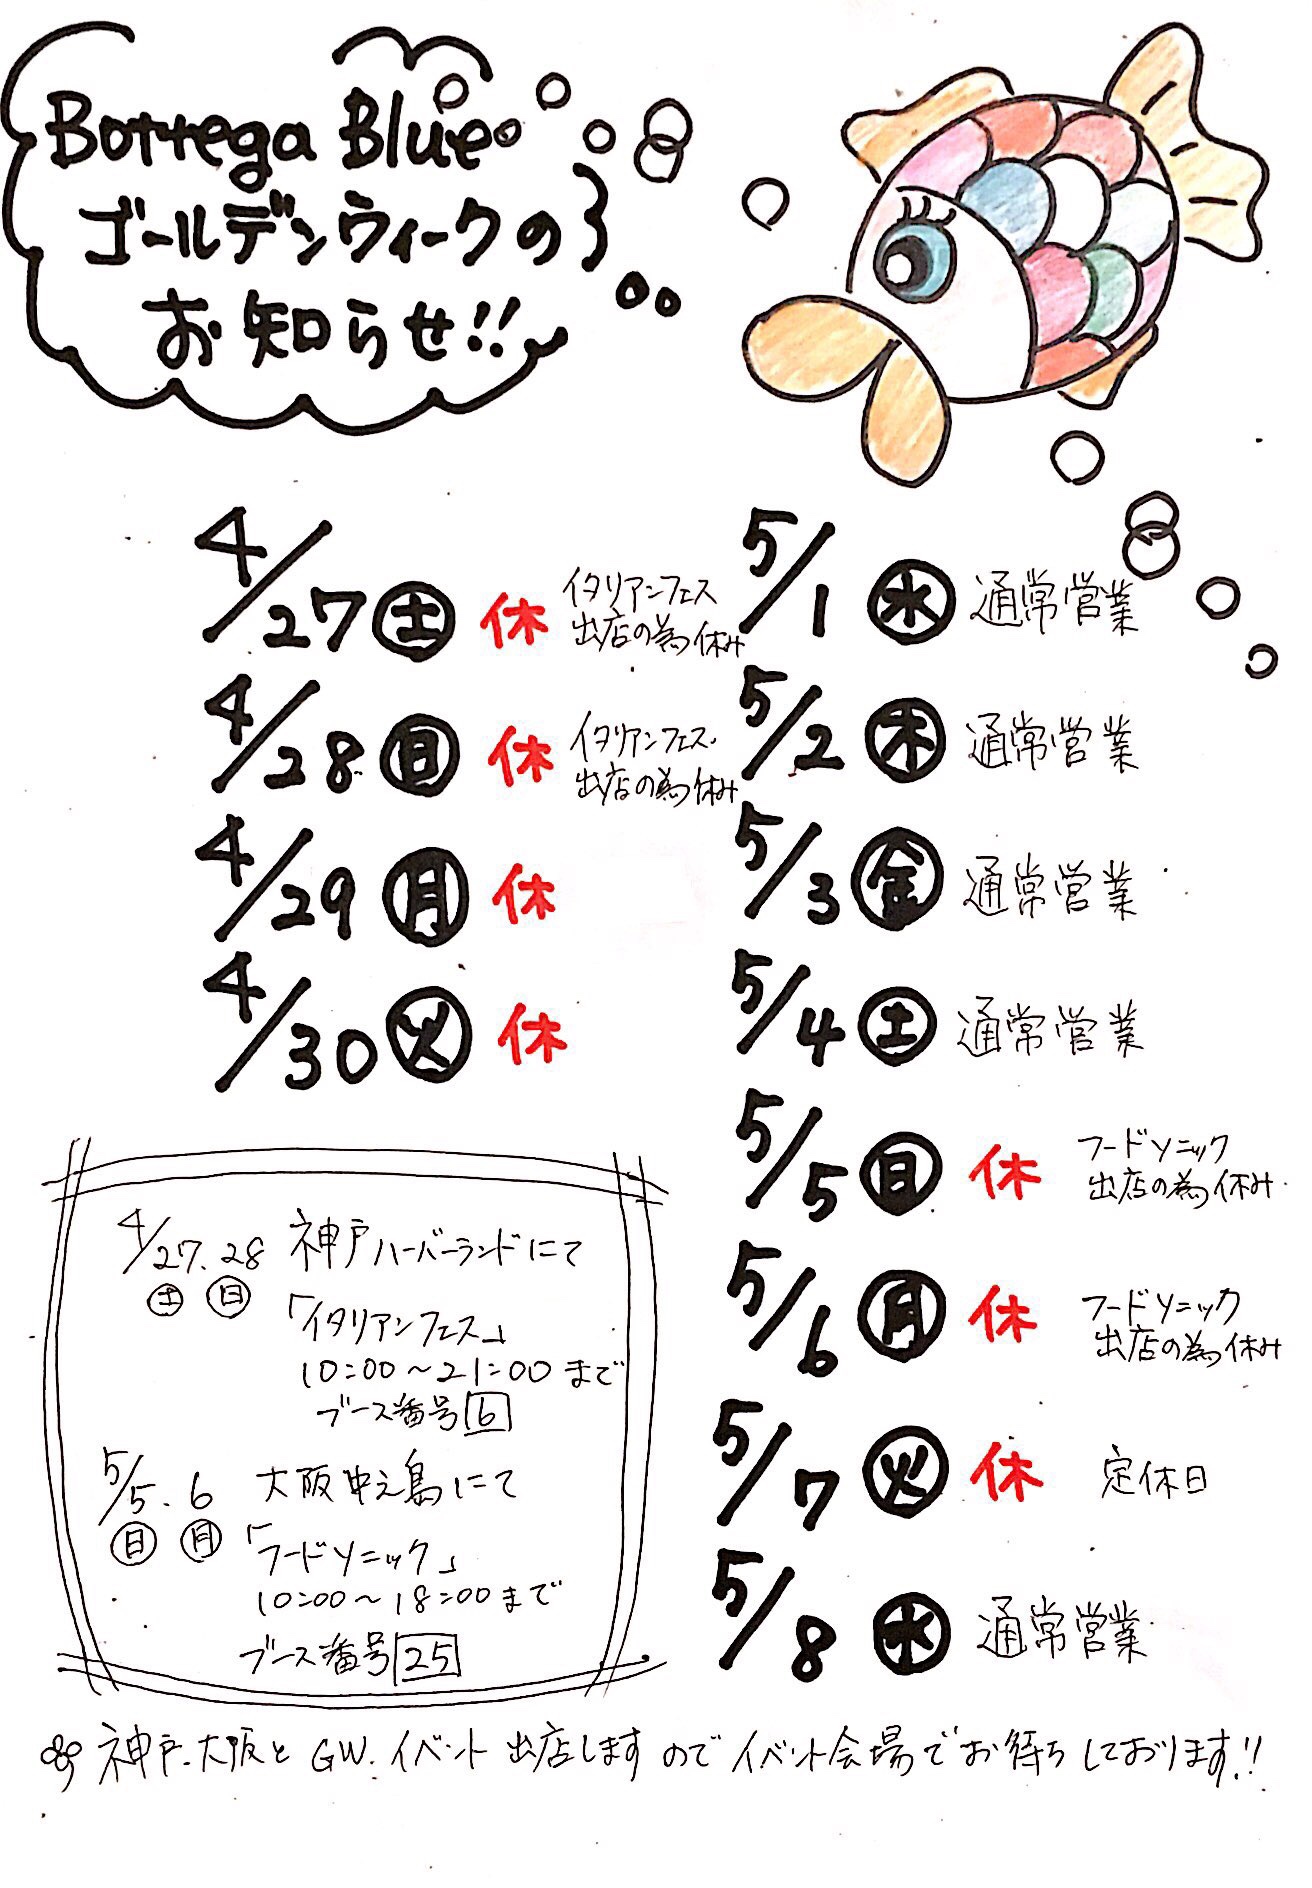 Bottega Blue
ゴールデンウィークの
お知らせ!!
4/27 土 休 イタリアンフェス
出店の為休み
4/28 日 休 イタリアンフェス
出店の為休み
4/29 月 休
4/30 火 休
5/1 水 通常営業
5/2 木 通常営業
5/3 金 通常営業
5/4 土 通常営業
5/5 日 休 フードソニック
出店の為休み
5/6 月 休 フードソニック
出店の為休み
5/7 火 休 定休日
5/8 水 通常営業
4/27.28 神戸ハーバーランドにて
土 日
「イタリアンフェス」
10:00～21:00まで
ブース番号 6
5/5.6 大阪中之島にて
日 月
「フードソニック」
10:00～18:00まで
ブース番号 25
神戸.大阪とGW.イベント出店しますのでイベント会場でお待ちしております!!